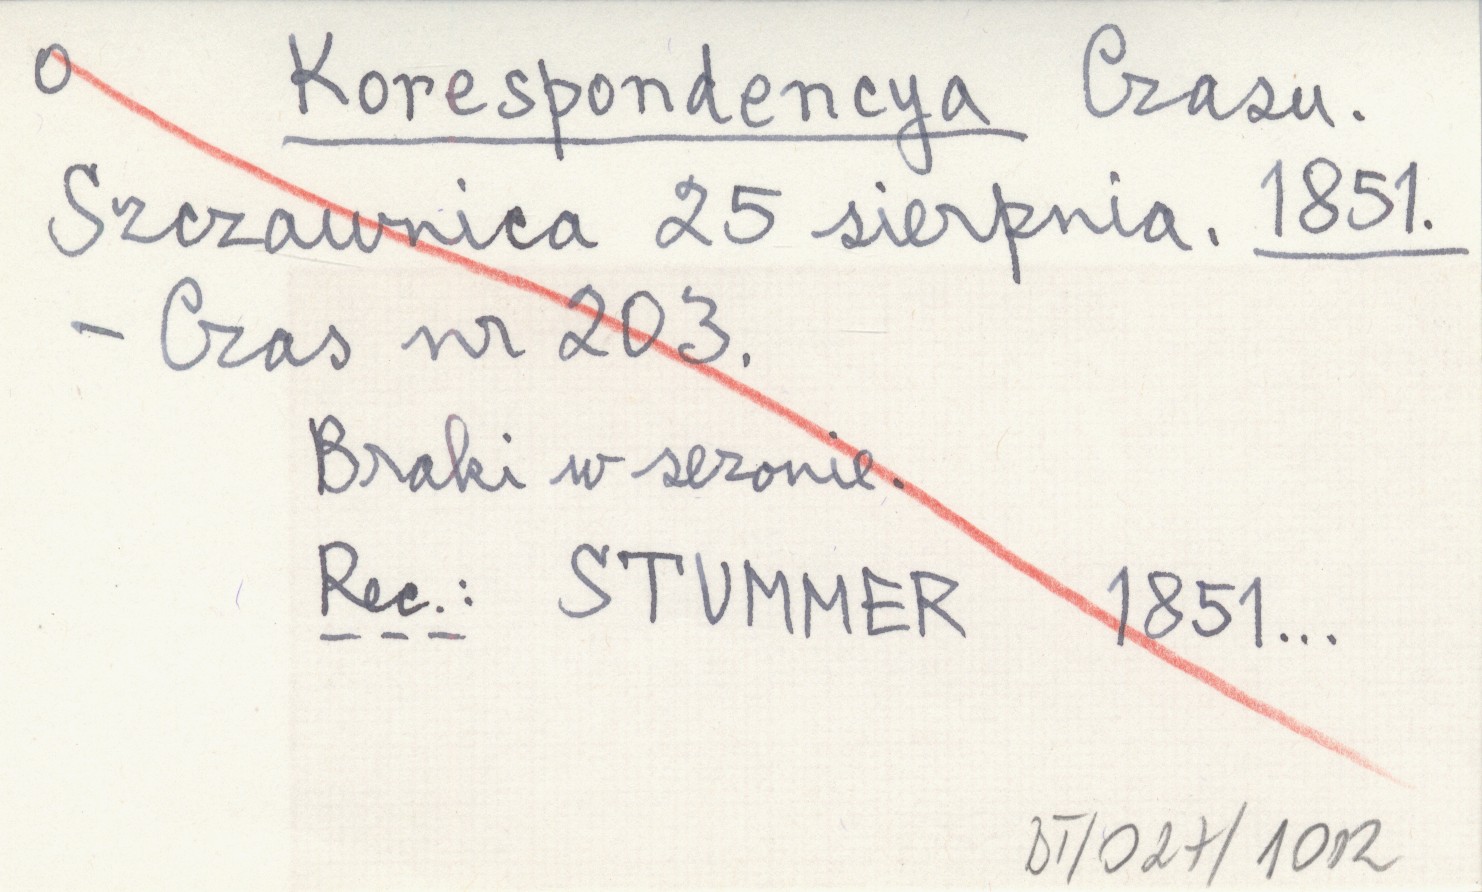 o Korespondencya Czasu.
Szczawnica 25 sierpnia. 1851.
- Czas nr 203.
Braki w sezonie.
Rec.: STUMMER 1851...
BT/027/1012